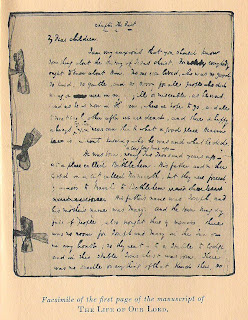 Chapter the First
My Dear Children
I am very anxious that you should know
something about the History of Jesus Christ. For everybody
ought to know about Him. No one ever lived, who was so good,
so kind, so gentle, and so sorry for all people who did
wrong, or were in any ill or miserable, as he was.
And as he is now in Heaven, where we hope to go, and all
to meet each other after we are dead, and there be happy
always, you never can think what a good place Heaven
is without knowing who he was and what he did.
He was born, a long long time ago
at a place called Bethlehem. His father and mother
lived in a city called Nazareth, but they were forced
by business to travel to Bethlehem
His father's name was Joseph, and
his mother's name was Mary. And the town being very
full of people, also brought there by business, there
was no room for Joseph and Mary in the Inn or
in any house; so they went into a Stable to lodge
and in this stable Jesus Christ was born. There
was no cradle or anything of that kind there, so
Facsimile of the first page of the manuscript of
THE LIFE OF OUR LORD.